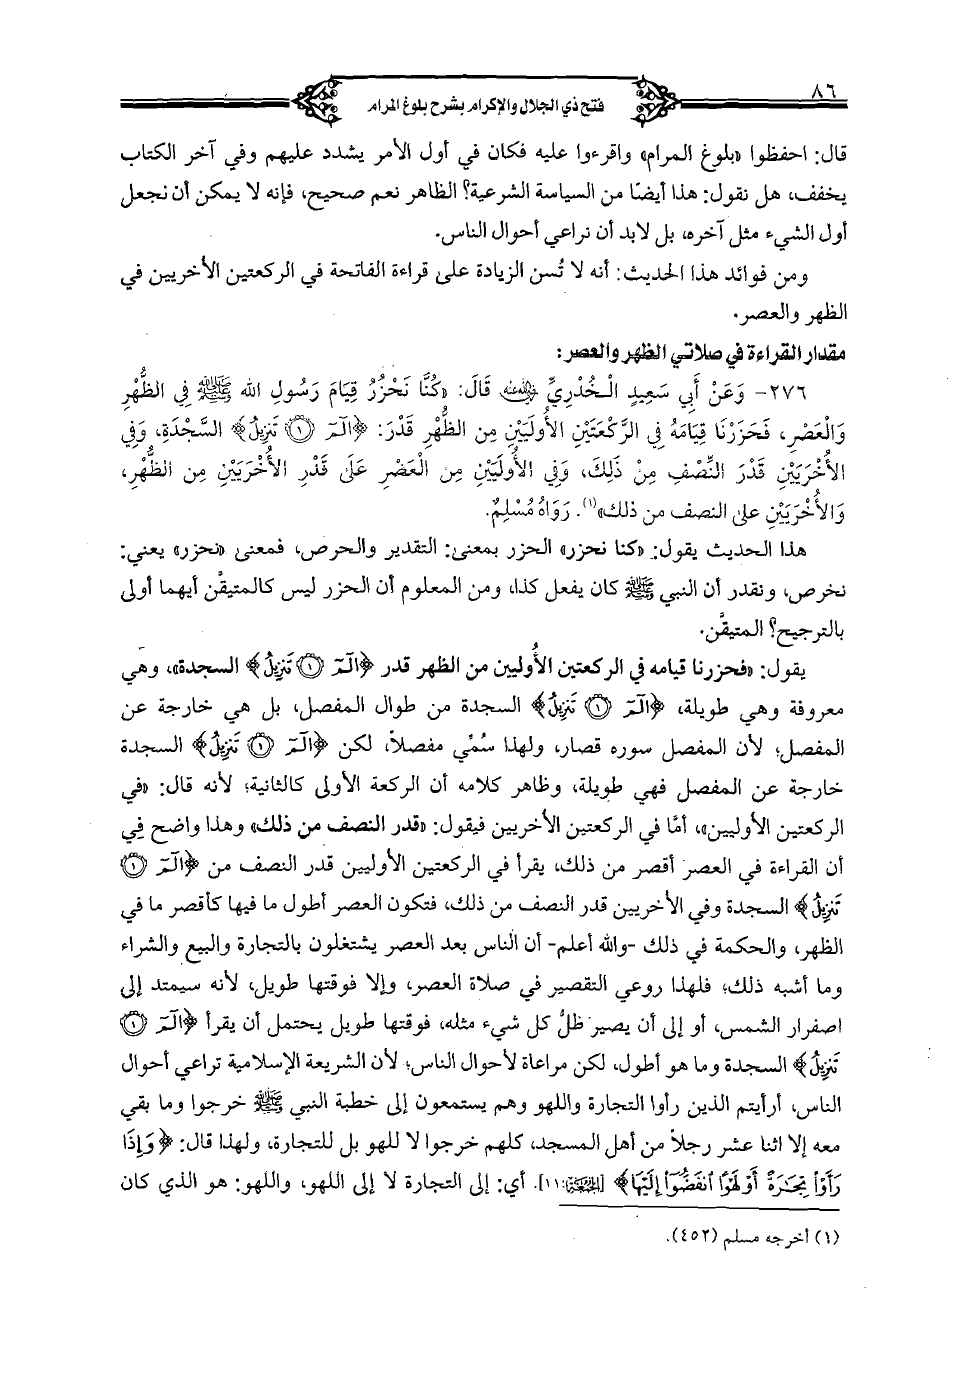 ٨٦
فتح ذي الجلال والإكرام بشرح بلوغ المرام
قال: احفظوا «بلوغ المرام» واقرءوا عليه فكان في أول الأمر يشدد عليهم وفي آخر الكتاب
يخفف، هل نقول: هذا أيضًا من السياسة الشرعية؟ الظاهر نعم صحيح، فإنه لا يمكن أن نجعل
أول الشيء مثل آخره، بل لابد أن نراعي أحوال الناس.
ومن فوائد هذا الحديث: أنه لا تُسن الزيادة على قراءة الفاتحة في الركعتين الأخريين في
الظهر والعصر.
مقدار القراءة في صلاتي الظهر والعصر:
٢٧٦- وَعَنْ أَبِي سَعِيدٍ الْخُدْرِيِّ رضي الله عنه قَالَ: «كُنَّا نَحْزُرُ قِيَامَ رَسُولِ الله ﷺ فِي الظُّهْرِ
وَالْعَصْرِ، فَحَزَرْنَا قِيَامَهُ فِي الرَّكْعَتَيْنِ الأُولَيَيْنِ مِنَ الظُّهْرِ قَدْرَ: ﴿الٓمٓ ١ تَنزِيلُ﴾ السَّجْدَةِ، وَفِي
الأُخْرَيَيْنِ قَدْرَ النِّصْفِ مِنْ ذَلِكَ، وَفِي الأُولَيَيْنِ مِنَ الْعَصْرِ عَلَى قَدْرِ الأُخْرَيَيْنِ مِنَ الظُّهْرِ،
وَالأُخْرَيَيْنِ على النصف من ذلك»(١). رَوَاهُ مُسْلِمٌ.
هذا الحديث يقول: «كنا نحزر» الحزر بمعنى: التقدير والحرص، فمعنى «نحزر» يعني:
نخرص، ونقدر أن النبي ﷺ كان يفعل كذا، ومن المعلوم أن الحزر ليس كالمتيقَّن أيهما أولى
بالترجيح؟ المتيقَّن.
يقول: «فحزرنا قيامه في الركعتين الأُوليين من الظهر قدر ﴿الٓمٓ ١ تَنزِيلُ﴾ السجدة»، وهي
معروفة وهي طويلة، ﴿الٓمٓ ١ تَنزِيلُ﴾ السجدة من طوال المفصل، بل هي خارجة عن
المفصل؛ لأن المفصل سوره قصار، ولهذا سُمِّي مفصلاً، لكن ﴿الٓمٓ ١ تَنزِيلُ﴾ السجدة
خارجة عن المفصل فهي طويلة، وظاهر كلامه أن الركعة الأولى كالثانية؛ لأنه قال: «في
الركعتين الأوليين»، أمَّا في الركعتين الأخريين فيقول: «قدر النصف من ذلك» وهذا واضح في
أن القراءة في العصر أقصر من ذلك، يقرأ في الركعتين الأوليين قدر النصف من ﴿الٓمٓ ١
تَنزِيلُ﴾ السجدة وفي الأخريين قدر النصف من ذلك، فتكون العصر أطول ما فيها كأقصر ما في
الظهر، والحكمة في ذلك -والله أعلم- أن الناس بعد العصر يشتغلون بالتجارة والبيع والشراء
وما أشبه ذلك؛ فلهذا روعي التقصير في صلاة العصر، وإلا فوقتها طويل، لأنه سيمتد إلى
اصفرار الشمس، أو إلى أن يصير ظلُّ كل شيء مثله، فوقتها طويل يحتمل أن يقرأ ﴿الٓمٓ ١
تَنزِيلُ﴾ السجدة وما هو أطول، لكن مراعاة لأحوال الناس؛ لأن الشريعة الإسلامية تراعي أحوال
الناس، أرأيتم الذين رأوا التجارة واللهو وهم يستمعون إلى خطبة النبي ﷺ خرجوا وما بقي
معه إلا اثنا عشر رجلاً من أهل المسجد، كلهم خرجوا لا للهو بل للتجارة، ولهذا قال: ﴿وَإِذَا
رَأَوْا۟ تِجَٰرَةً أَوْ لَهْوًا ٱنفَضُّوٓا۟ إِلَيْهَا﴾ [الجمعة:١١]. أي: إلى التجارة لا إلى اللهو، واللهو: هو الذي كان
(١) أخرجه مسلم (٤٥٢).